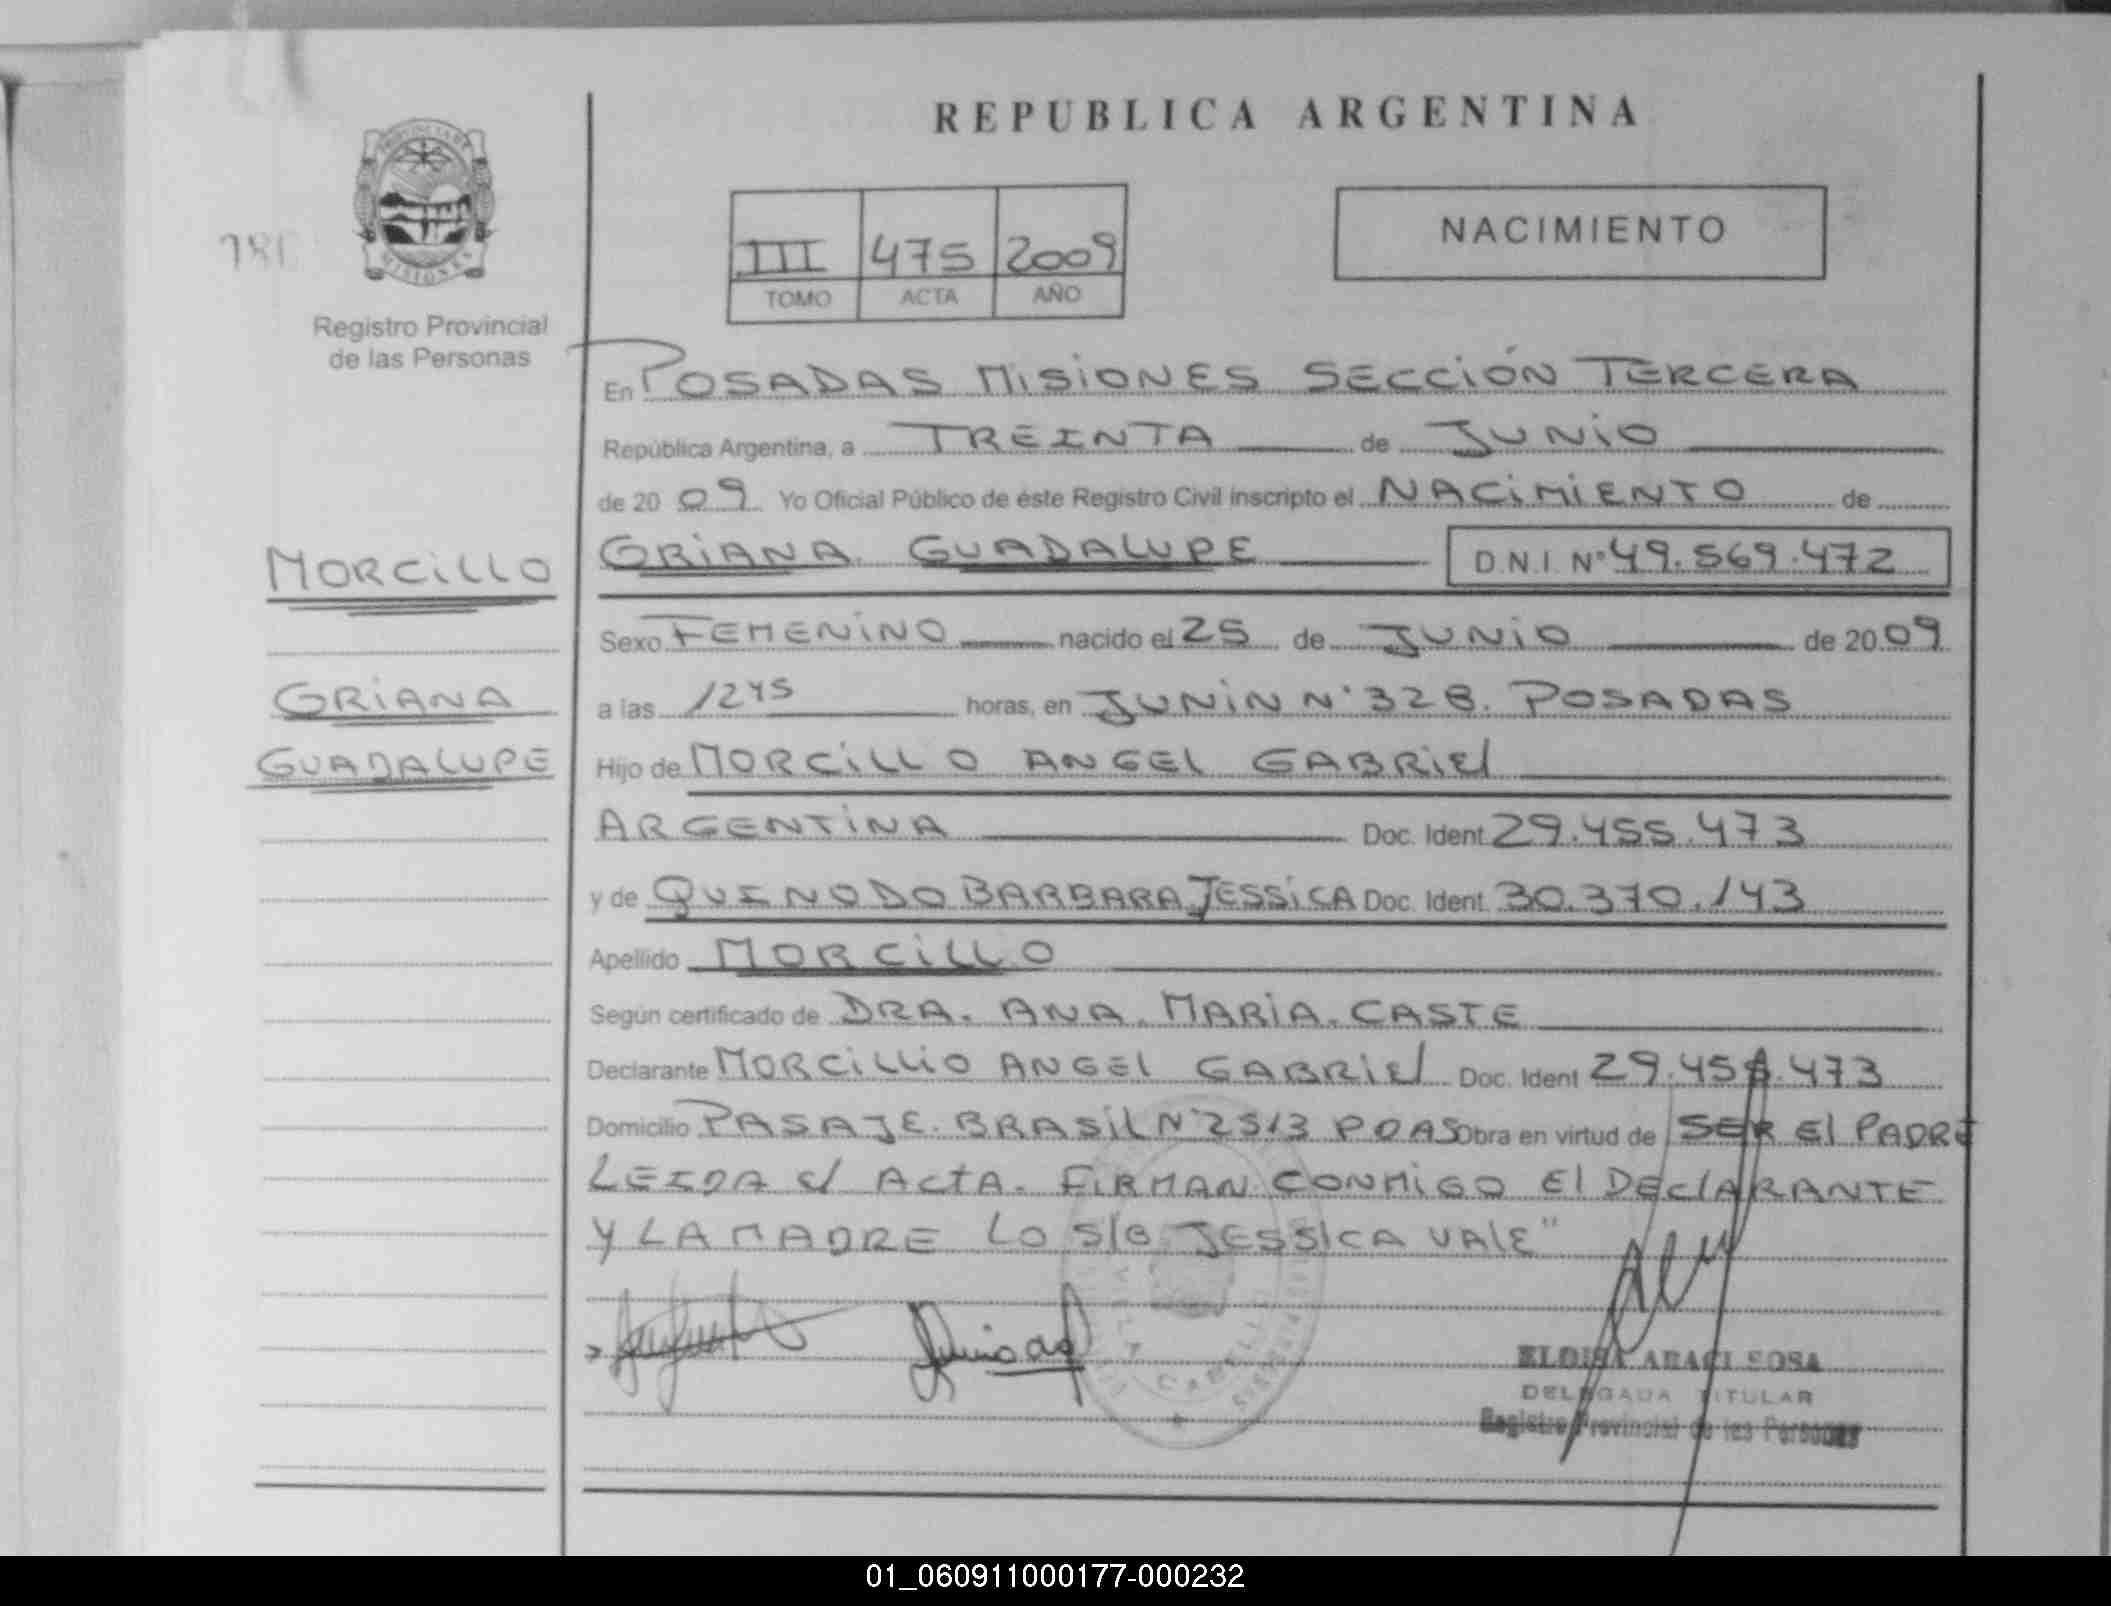 REPUBLICA ARGENTINA
PROVINCIA DE
MISIONES
Registro Provincial
de las Personas
III 475 2009
TOMO ACTA AÑO
NACIMIENTO
En POSADAS MISIONES SECCIÓN TERCERA
República Argentina, a TREINTA de JUNIO
de 20 09 Yo Oficial Público de éste Registro Civil inscripto el NACIMIENTO de
MORCILLO
GRIANA GUADALUPE D.N.I. Nº 49.569.472
Sexo FEMENINO nacido el 25 de JUNIO de 20 09
GRIANA
a las 1245 horas, en JUNIN Nº 328. POSADAS
GUADALUPE
Hijo de MORCILLO ANGEL GABRIEL
ARGENTINA Doc. Ident 29.455.473
y de QUINODO BARBARA JESSICA Doc. Ident. 30.370.143
Apellido MORCILLO
Según certificado de DRA. ANA. MARIA. CASTE
Declarante MORCILLIO ANGEL GABRIEL Doc. Ident 29.455.473
Domicilio PASAJE. BRASIL Nº 2513 PDAS Obra en virtud de SER El PADRE
LEIDA el ACTA. FIRMAN CONMIGO El DEClARANTE
Y LA MADRE LO S/B JESSICA VALE"
ELOISA ARACI SOSA
DELEGADA TITULAR
Registro Provincial de las Personas
01_060911000177-000232